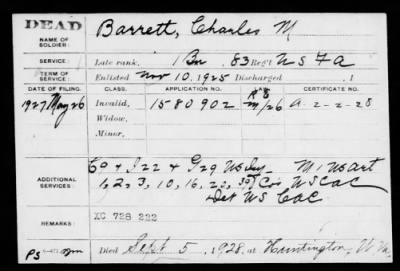 DEAD
NAME OF SOLDIER:
Barrett, Charles M
SERVICE:
Late rank, 1 Bn. 83 Reg't U S F A
TERM OF SERVICE:
Enlisted Nov 10, 1925 Discharged , 1
DATE OF FILING. CLASS. APPLICATION NO. LAW. CERTIFICATE NO.
1927 May 26 Invalid, 1580902 A-2-2-28
Widow,
Minor,
ADDITIONAL SERVICES:
Co 9 + I 22 + G 29 US Inf M 1 US Art
1, 2, 3, 10, 16, 23, Cos US CAC
Det US CAC
REMARKS:
XC 728 222
Died Sept 5, 1928, at Huntington, W. Va.